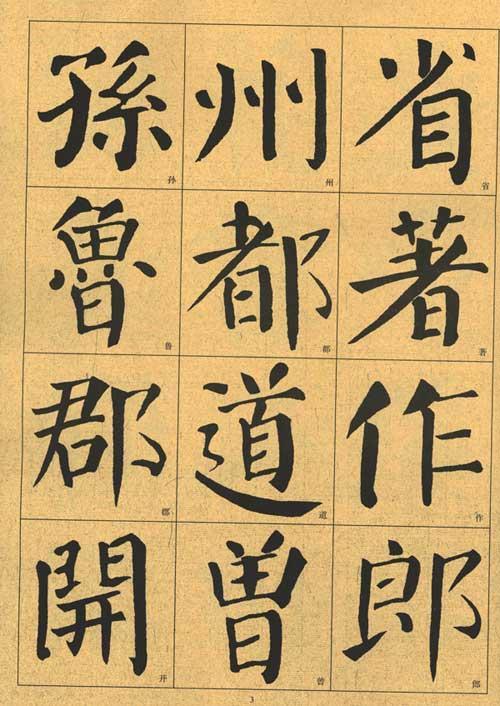 省著作郎
省著作郎
州都道曾
州都道曾
孫魯郡開
孙鲁郡开
3